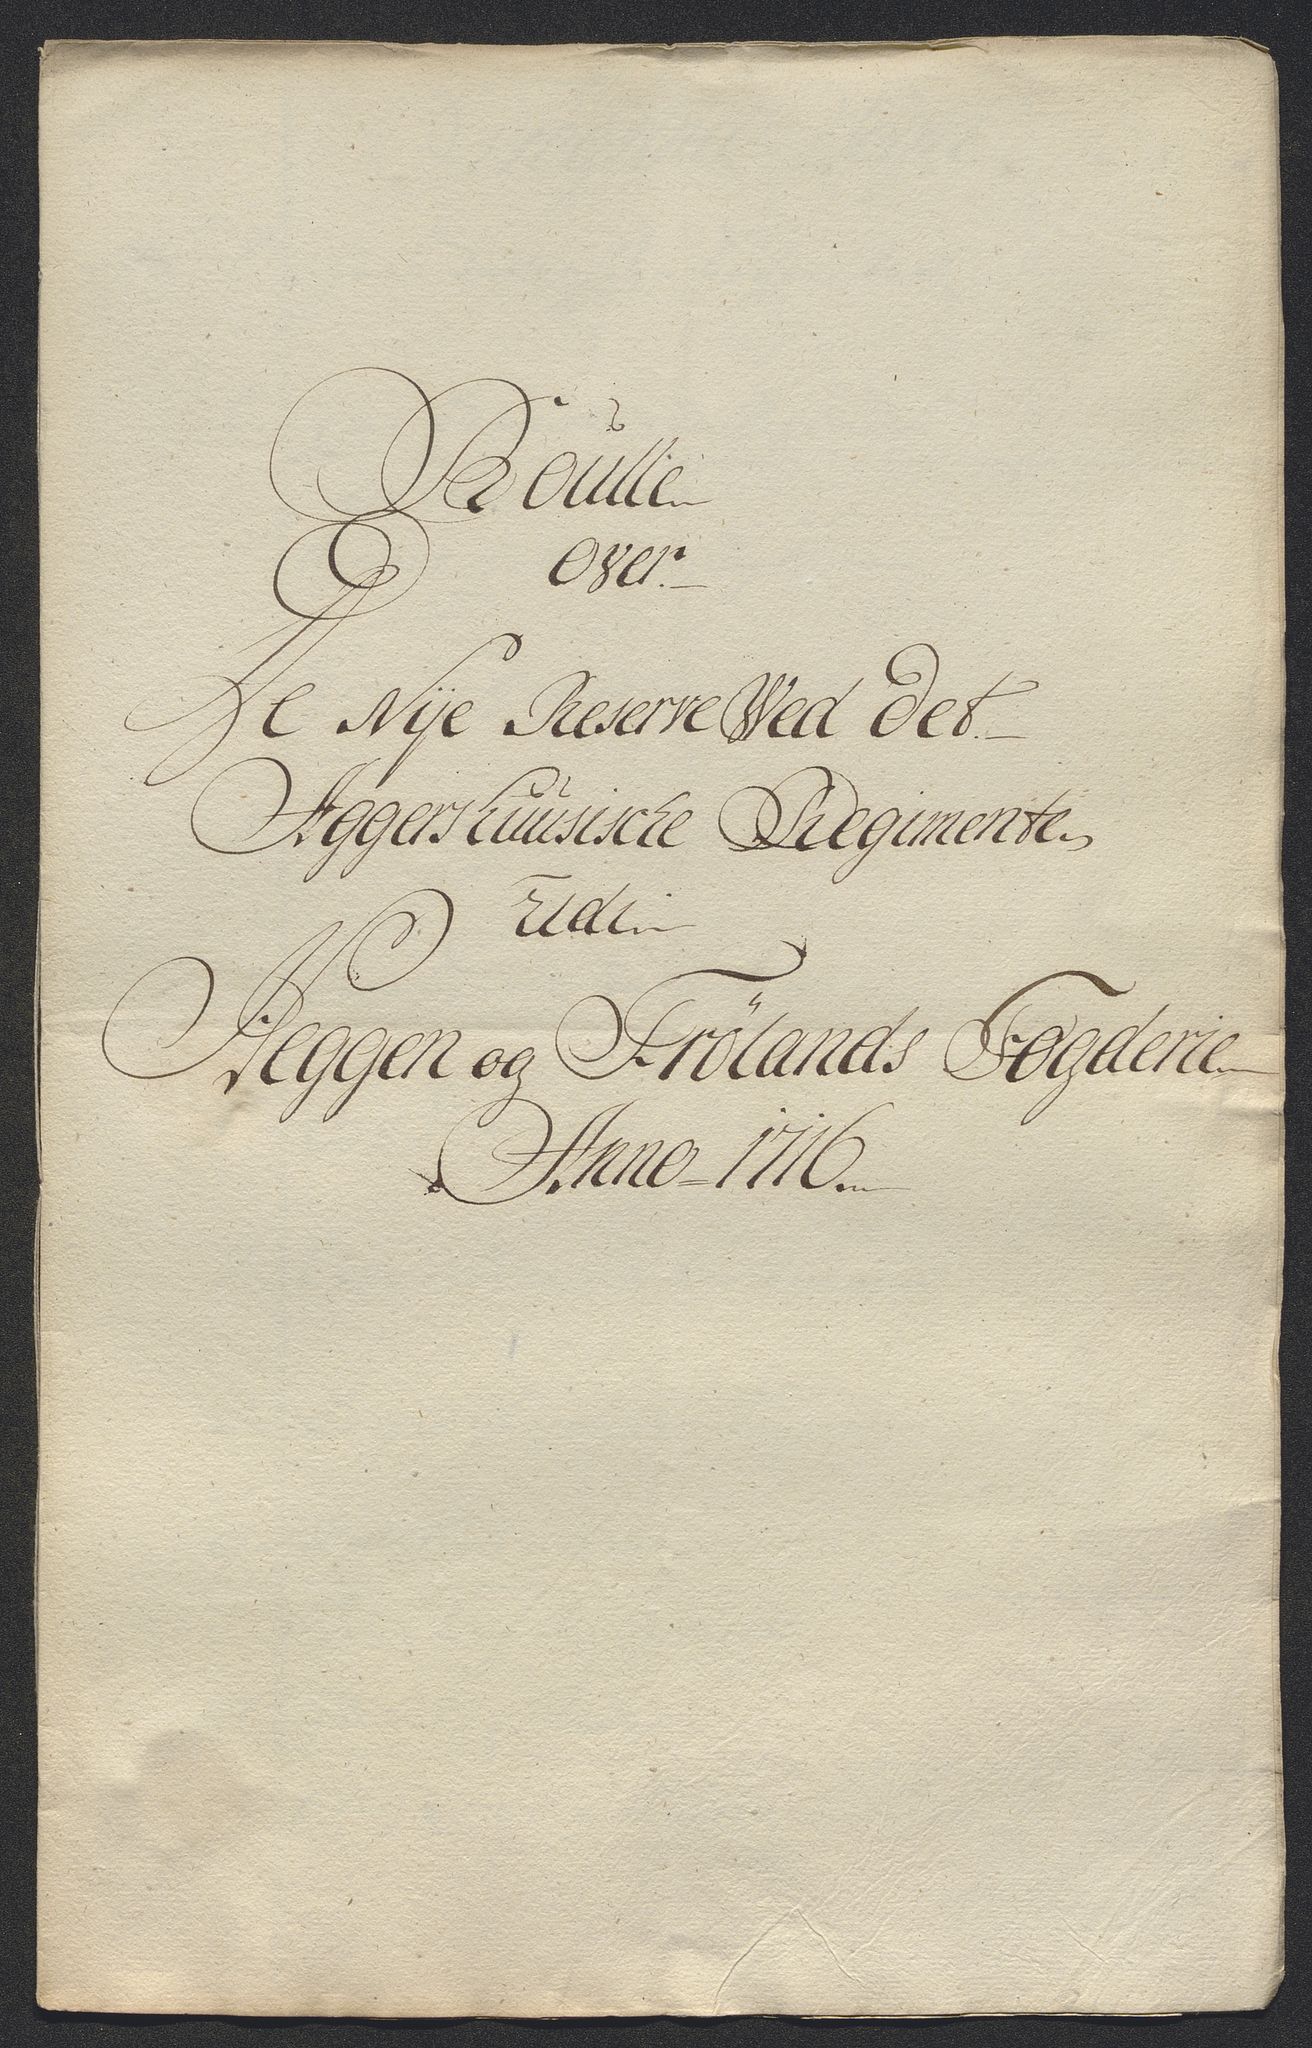 Roulle
over
De Nÿe Reserve Ved det
Aggershuusische Regimente
Udi
Heggen og Frölands Fogderie
Anno 1716